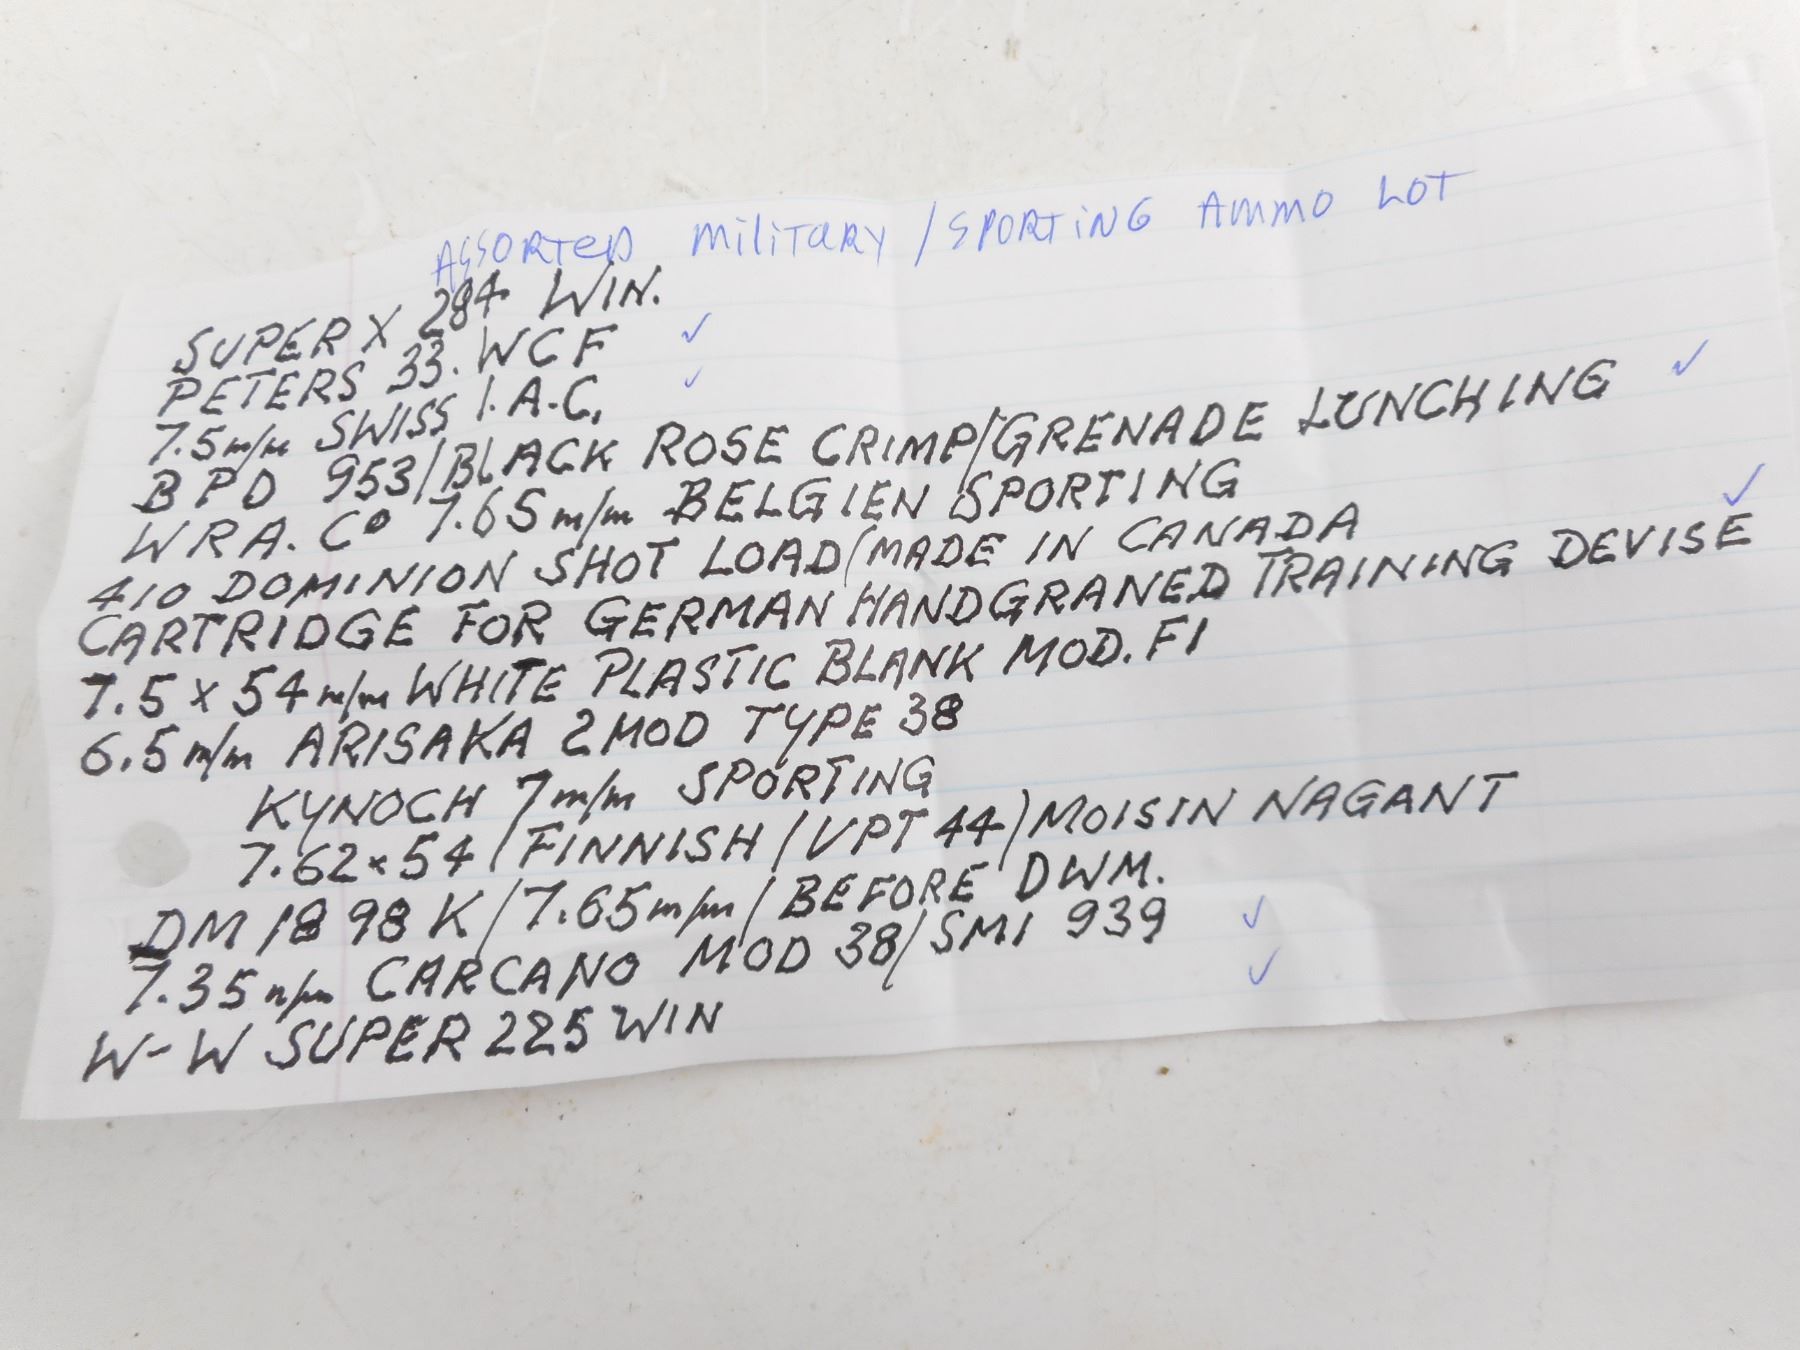 ASSORTED MILITARY / SPORTING AMMO LOT
SUPER X 284 WIN.
PETERS 33. WCF ✓
7.5 m/m SWISS I.A.C. ✓
BPD 953/BLACK ROSE CRIMP/GRENADE LUNCHING ✓
WRA. Co 7.65 m/m BELGIEN SPORTING
410 DOMINION SHOT LOAD/MADE IN CANADA
CARTRIDGE FOR GERMAN HANDGRANED TRAINING DEVISE ✓
7.5 x 54 m/m WHITE PLASTIC BLANK MOD. F1
6.5 m/m ARISAKA 2 MOD TYPE 38
KYNOCH 7 m/m SPORTING
7.62 x 54 / FINNISH / VPT 44 / MOISIN NAGANT
DM 1898 K / 7.65 m/m / BEFORE DWM.
7.35 m/m CARCANO MOD 38/SMI 939 ✓
W-W SUPER 225 WIN ✓